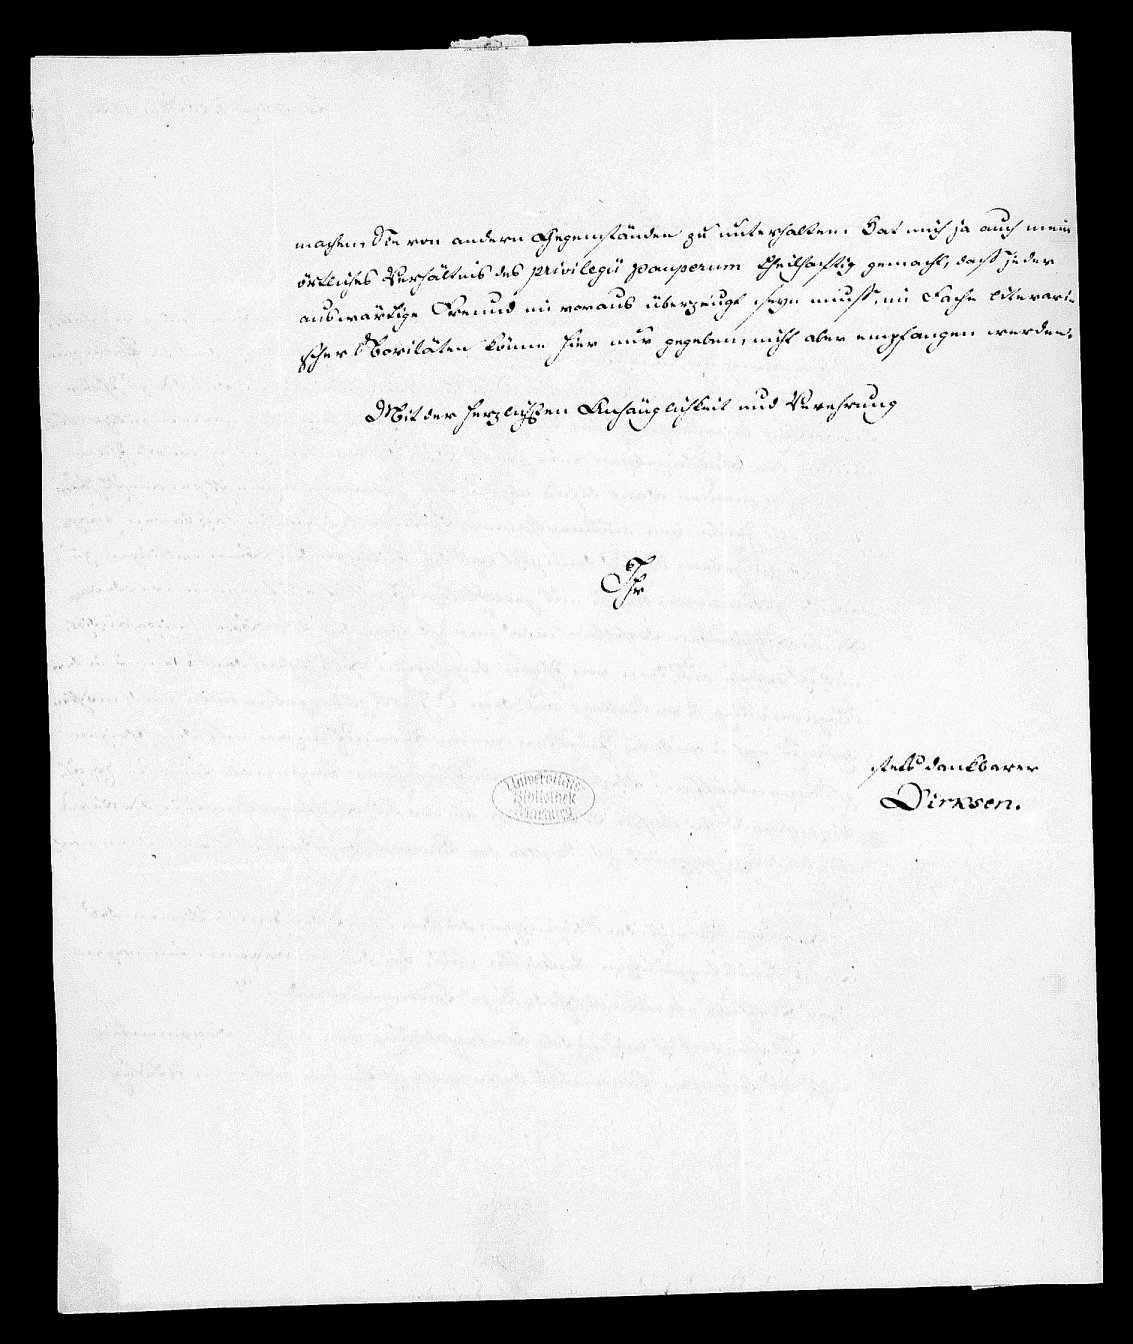 machen, Sie von andern Gegenständen zu unterhalten. Hat mich ja auch mein
örtliches Verhältnis des privilegii pauperum theilhaftig gemacht, daß jeder
auswärtige Freund im voraus überzeugt seyn muß, im Fache literari-
scher Novitäten könne hier nur gegeben, nicht aber empfangen werden.
Mit der herzlichsten Anhänglichkeit und Verehrung
Ihr
stets dankbarer
Dirksen.
Universitäts
Bibliothek